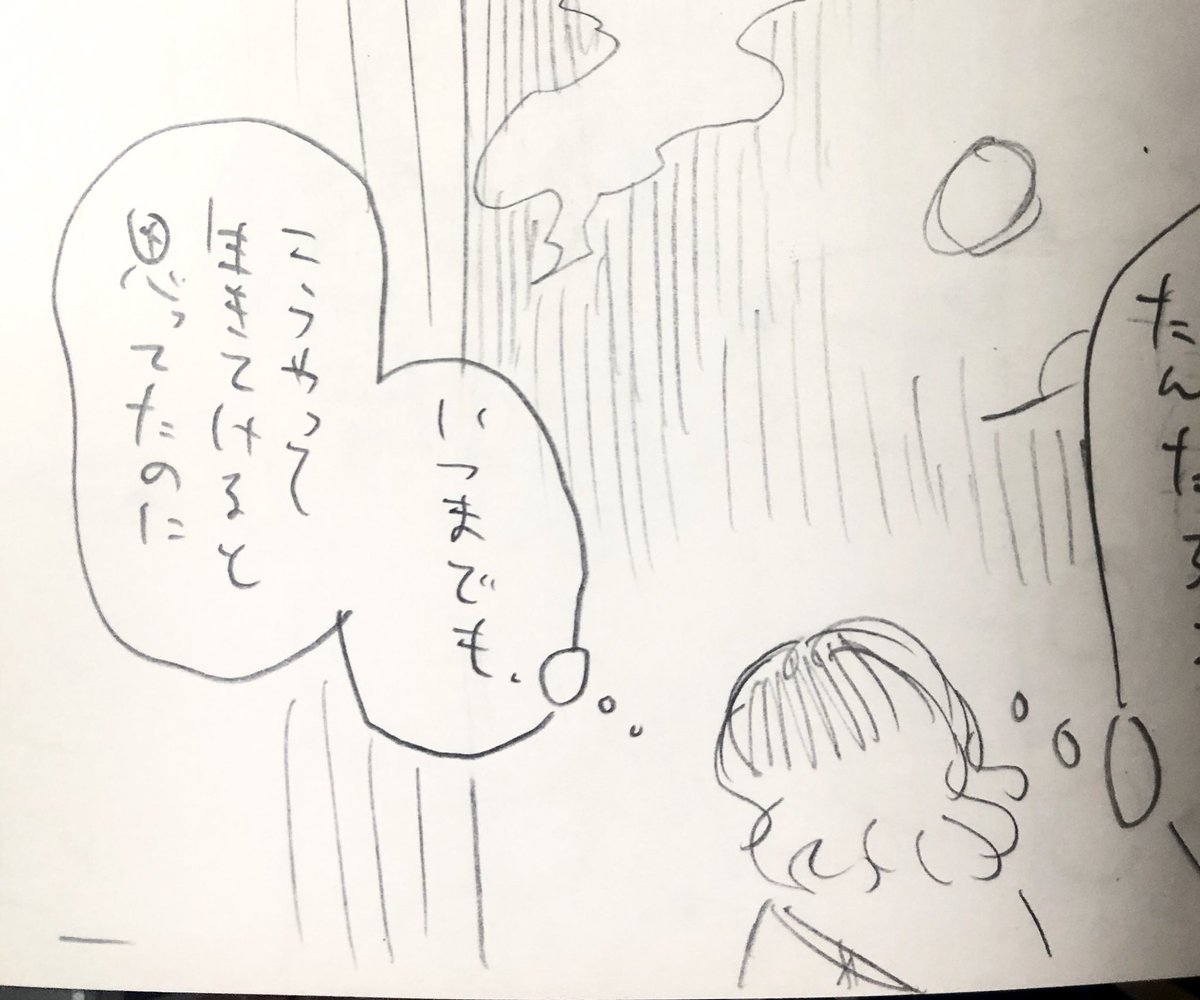 たんだろう
いつまでも、
こうやって
生きてけると
思ってたのに